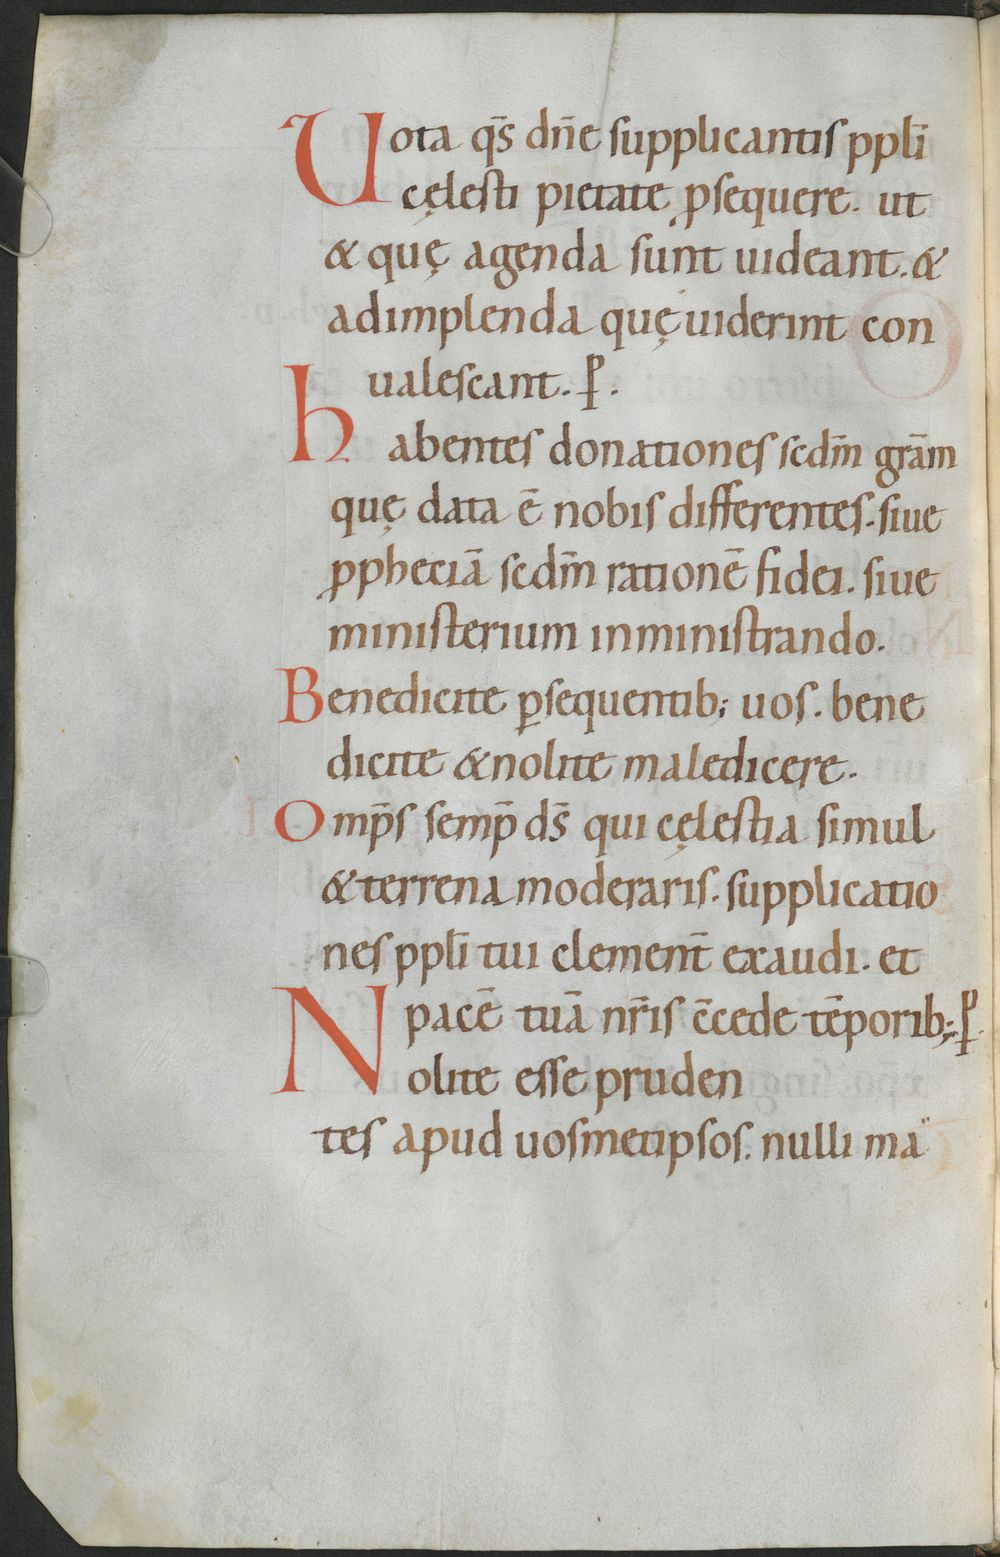 Uota q̄s dn̄e supplicantis ppl̄i
cęlesti pietate ꝓsequere. ut
& quę agenda sunt uideant. &
adimplenda quę uiderint con
ualescant. ꝑ.
habentes donationes scdm̄ grām
quę data ē nobis differentes. siue
ꝓphetiā scdm̄ rationē fidei. siue
ministerium inministrando.
Benedicite ꝑsequentib; uos. bene
dicite & nolite maledicere.
Omp̄s semp̄ ds̄ qui cęlestia simul
& terrena moderaris. supplicatio
nes ppl̄i tui clement̄ exaudi. et
pacē tuā nr̄is c̄cede tēporib; ꝑ.
Nolite esse pruden
tes apud uosmetipsos. nulli ma